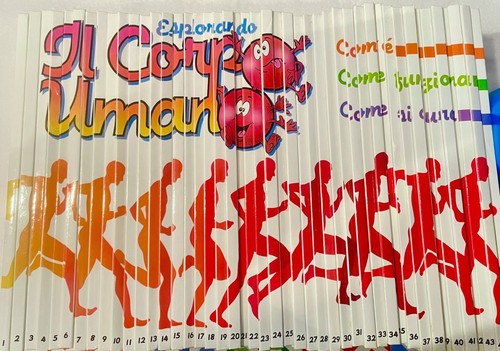 Esplorando
Il Corpo
Umano
Com'è
Come funziona
Come si cura
1 2 3 4 5 6 7 8 9 10 11 12 13 14 15 16 17 18 19 20 21 22 23 24 25 26 27 28 29 30 31 32 33 34 35 36 37 38 39 40 41 42 43